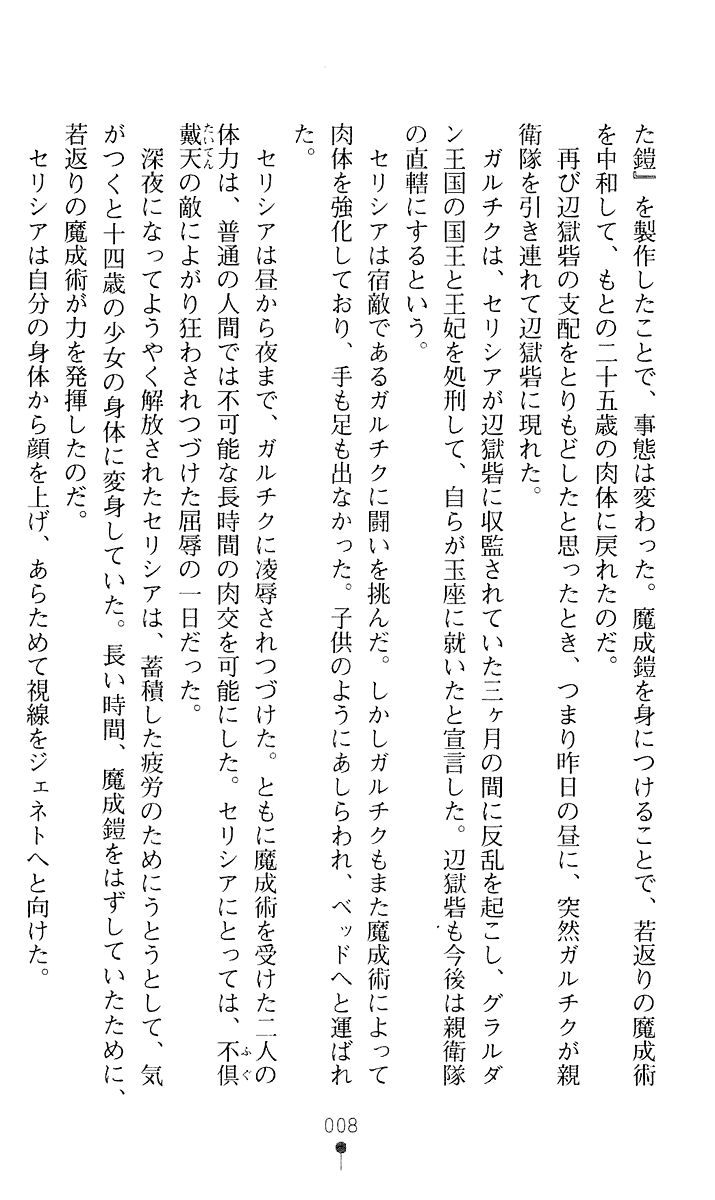 た鎧』を製作したことで、事態は変わった。魔成鎧を身につけることで、若返りの魔成術
を中和して、もとの二十五歳の肉体に戻れたのだ。
再び辺獄砦の支配をとりもどしたと思ったとき、つまり昨日の昼に、突然ガルチクが親
衛隊を引き連れて辺獄砦に現れた。
ガルチクは、セリシアが辺獄砦に収監されていた三ヶ月の間に反乱を起こし、グラルダ
ン王国の国王と王妃を処刑して、自らが玉座に就いたと宣言した。辺獄砦も今後は親衛隊
の直轄にするという。
セリシアは宿敵であるガルチクに闘いを挑んだ。しかしガルチクもまた魔成術によって
肉体を強化しており、手も足も出なかった。子供のようにあしらわれ、ベッドへと運ばれ
た。
セリシアは昼から夜まで、ガルチクに凌辱されつづけた。ともに魔成術を受けた二人の
体力は、普通の人間では不可能な長時間の肉交を可能にした。セリシアにとっては、不倶
戴天の敵によがり狂わされつづけた屈辱の一日だった。
深夜になってようやく解放されたセリシアは、蓄積した疲労のためにうとうとして、気
がつくと十四歳の少女の身体に変身していた。長い時間、魔成鎧をはずしていたために、
若返りの魔成術が力を発揮したのだ。
セリシアは自分の身体から顔を上げ、あらためて視線をジェネトへと向けた。
008